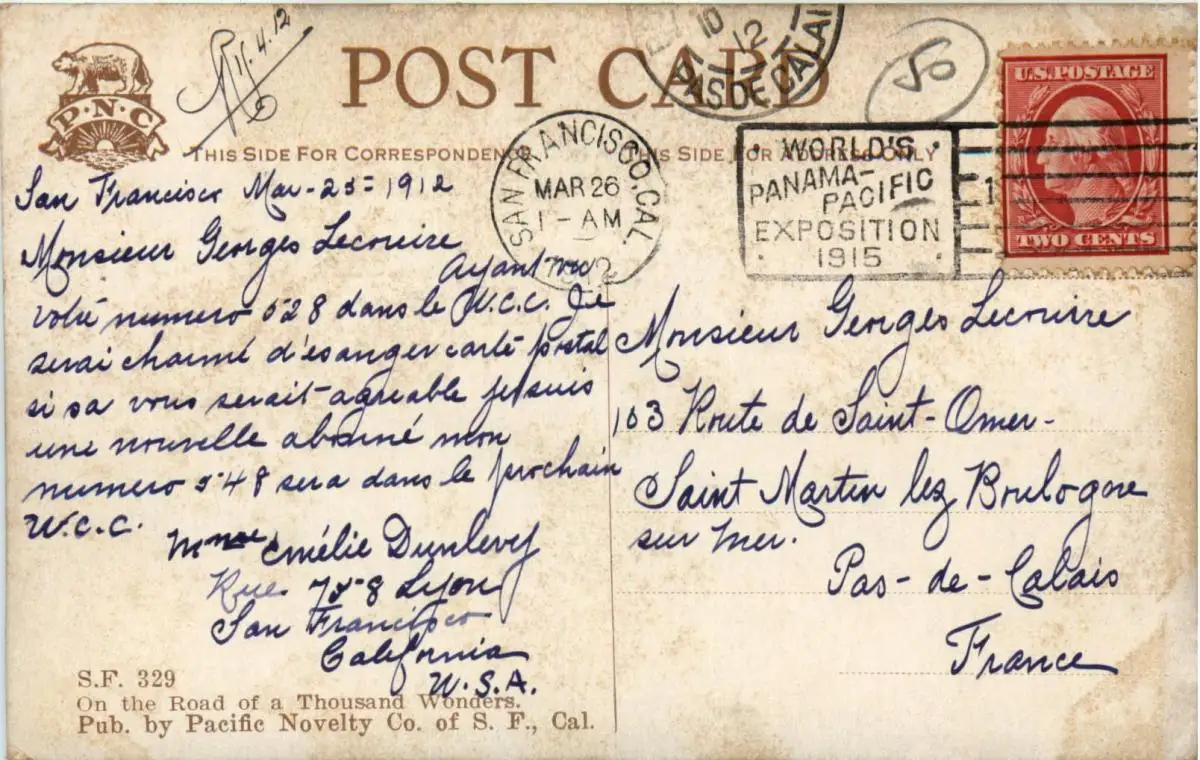 P.N.C.
R 11.4.12
POST CARD
PAS DE CALAIS
10
12
50
U.S. POSTAGE
TWO CENTS
THIS SIDE FOR CORRESPONDENCE
THIS SIDE FOR ADDRESS ONLY
SAN FRANCISCO, CAL.
MAR 26
1 - AM
1912
WORLD'S
PANAMA-
PACIFIC
EXPOSITION
1915
San Francisco Mar-25=1912
Monsieur Georges Lecouire
Ayant vu
votre numero 528 dans le W.C.C. Je
serai charmé d'esanger carte postal
si sa vous serait agreable je suis
une nouvelle abonné mon
numero 548 sera dans le prochain
W.C.C.
Mme Emélie Dunlevy
Rue 758 Lyon
San Francisco
California
U.S.A.
Monsieur Georges Lecouire
103 Route de Saint-Omer-
Saint Martin lez Boulogne
sur mer.
Pas-de-Calais
France
S.F. 329
On the Road of a Thousand Wonders.
Pub. by Pacific Novelty Co. of S. F., Cal.